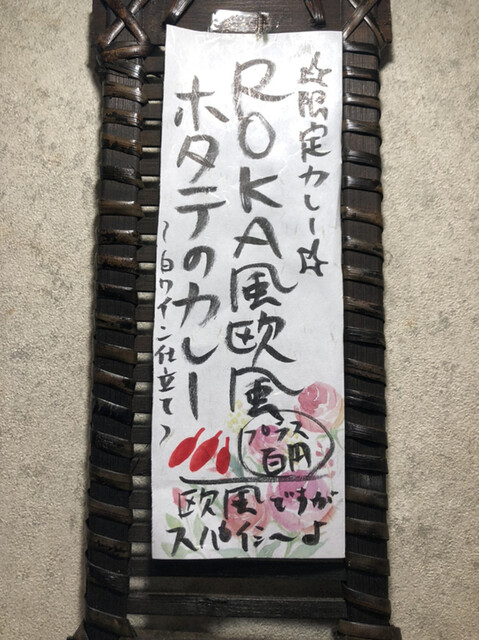 ☆限定カレー☆
ROKA風欧風
ホタテのカレー
〜白ワイン仕立て〜
プラス
百円
欧風ですが
スパイシ〜よ